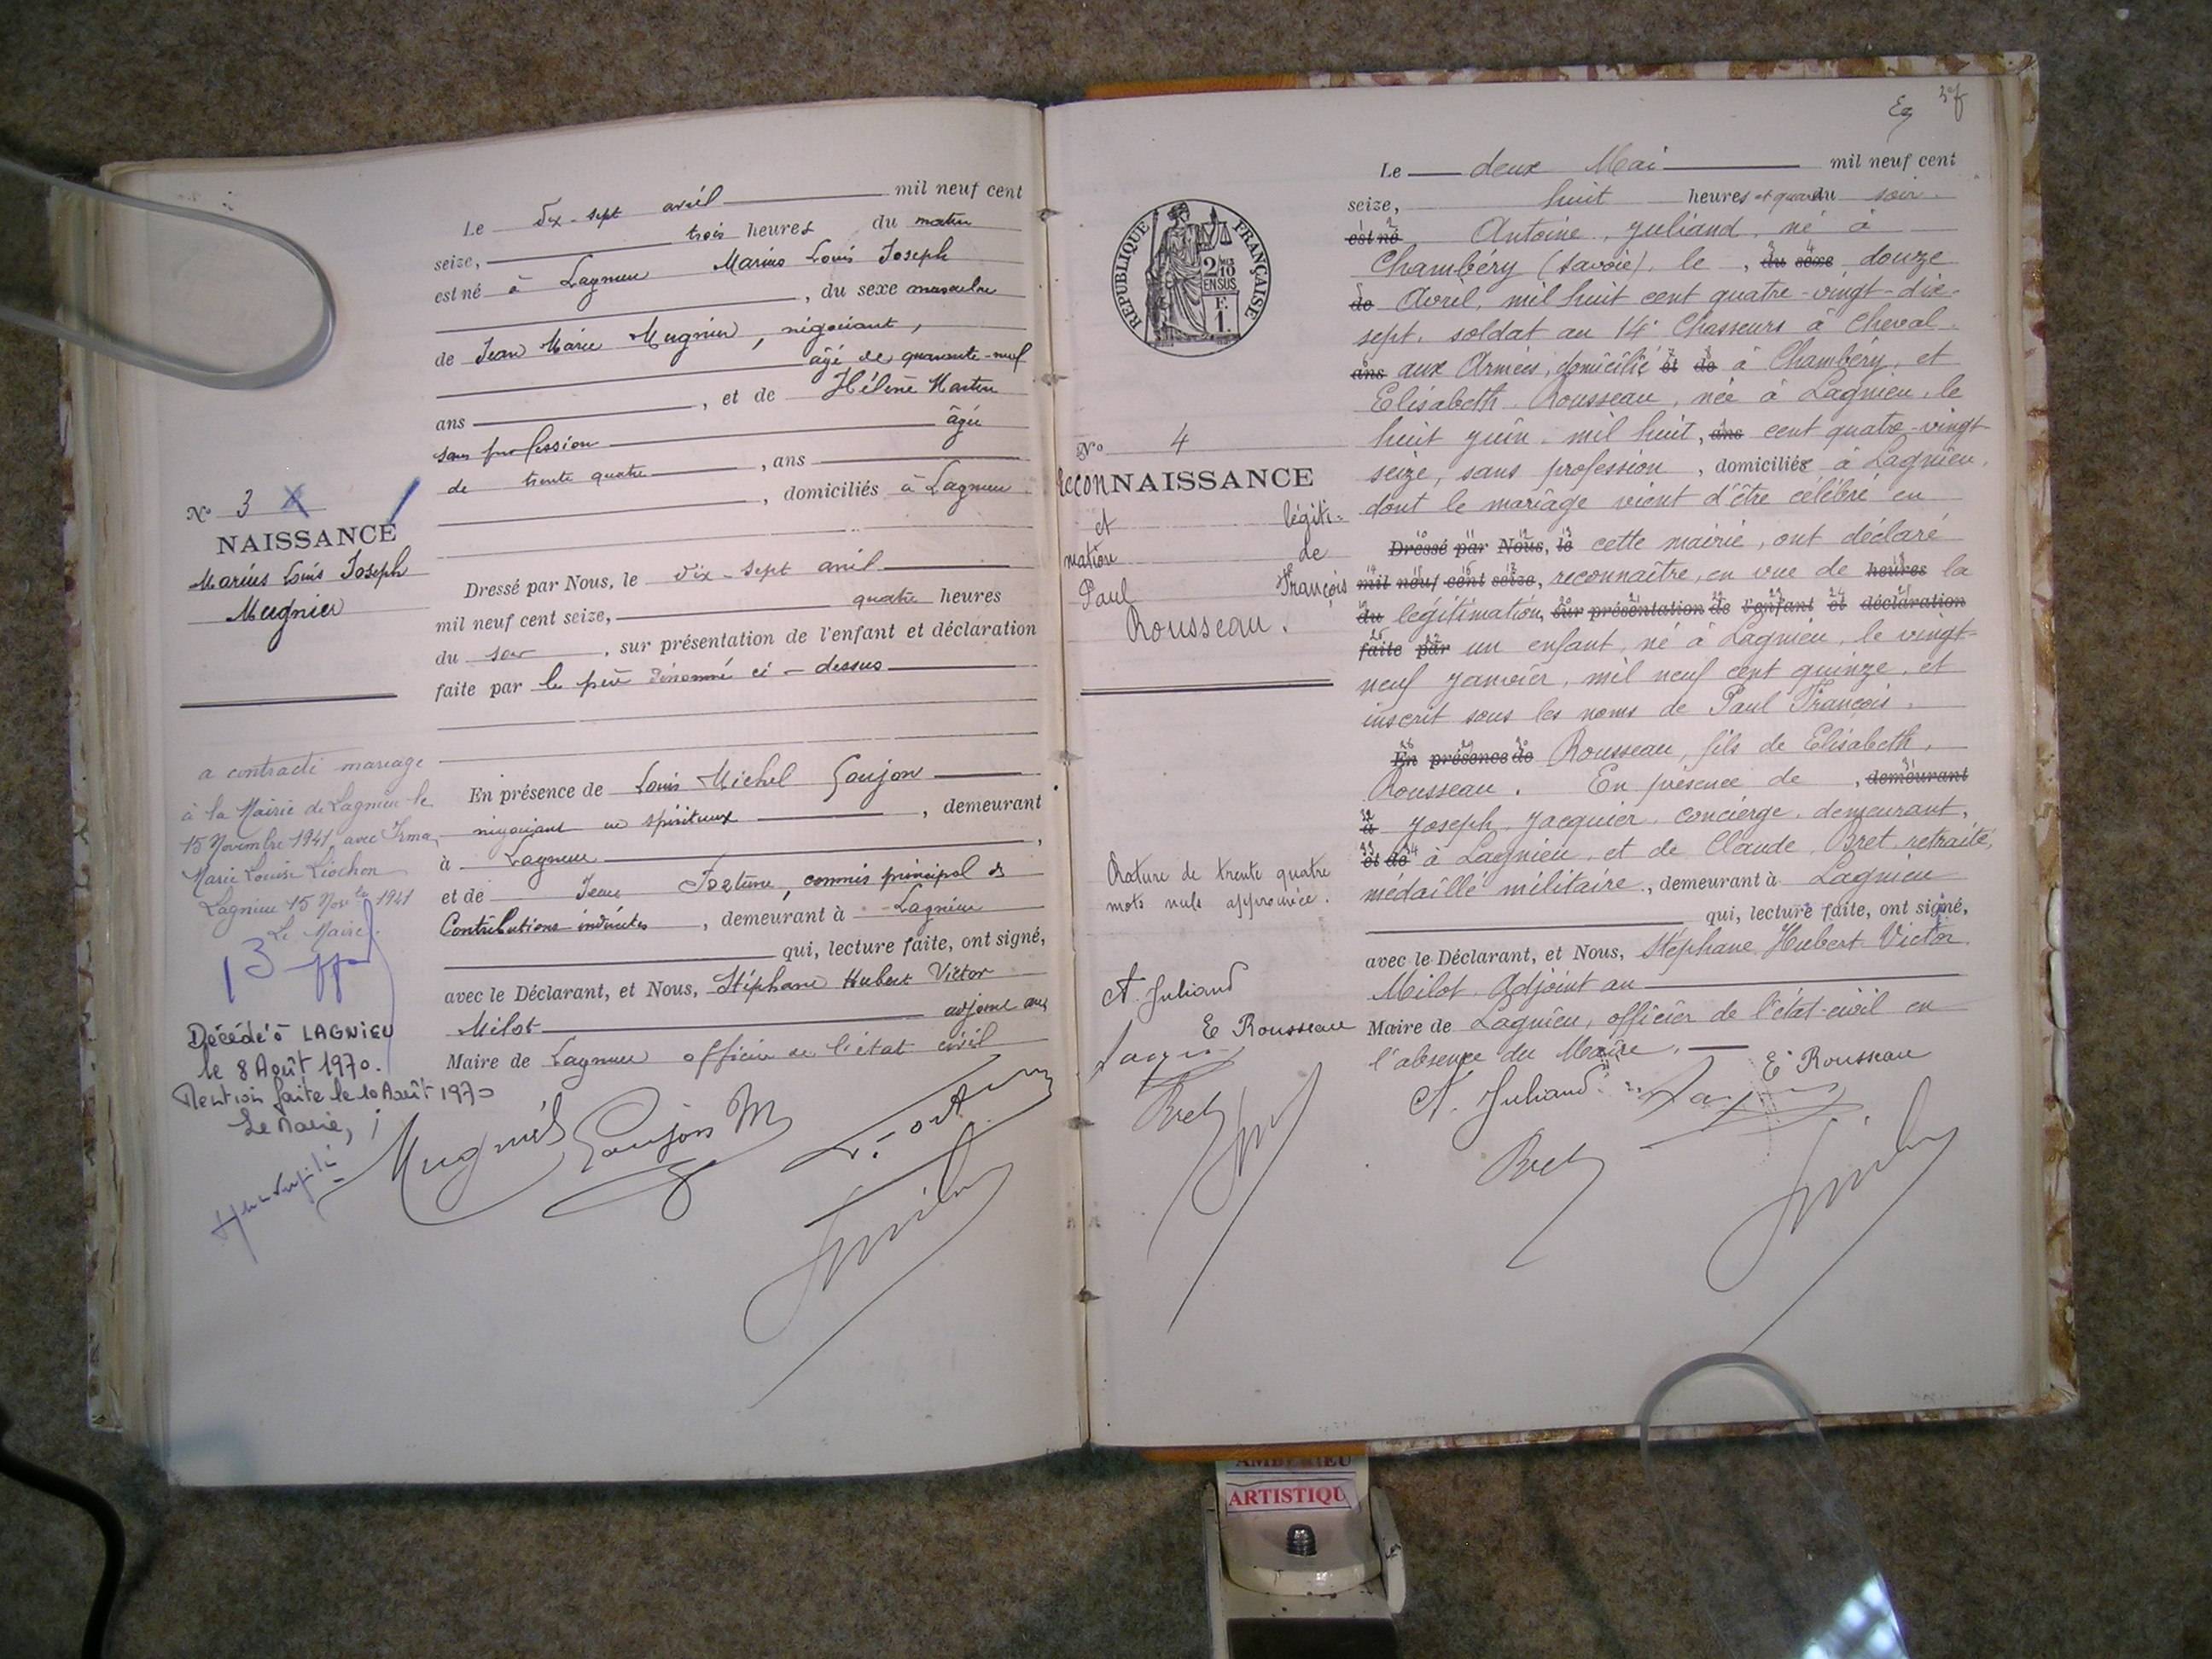 Le dix-sept avril mil neuf cent
seize, trois heures du matin
est né à Lagnieu Marius Louis Joseph
, du sexe masculin
de Jean Marie Mugnier, négociant,
âgé de quarante-neuf
ans , et de Hélène Martin
sans profession âgée
de trente quatre , ans
, domiciliés à Lagnieu
Dressé par Nous, le dix-sept avril
mil neuf cent seize, quatre heures
du soir , sur présentation de l'enfant et déclaration
faite par le père dénommé ci-dessus
En présence de Louis Michel Goujon
négociant en spiritueux , demeurant
à Lagnieu ,
et de Jean Fortune, commis principal des
Contributions indirectes , demeurant à Lagnieu
qui, lecture faite, ont signé,
avec le Déclarant, et Nous, Stéphane Hubert Victor
Milot adjoint au
Maire de Lagnieu officier de l'état civil
Mugnier Goujon M
No 3
NAISSANCE
Marius Louis Joseph
Mugnier
a contracté mariage
à la Mairie de Lagnieu le
15 Novembre 1941 avec Irma
Marie Louise Liochon
Lagnieu 15 Novbre 1941
Le Maire.
Décédé à LAGNIEU
le 8 Août 1970.
Mention faite le 10 Août 1970
Le Maire,
RÉPUBLIQUE FRANÇAISE
2/10
EN SUS
F.
1.
No 4
reconNAISSANCE
et légiti-
mation de
Paul François
Rousseau.
Rature de trente quatre
mots nuls approuvée.
A. Juliand
E Rousseau
Bret
Le deux Mai mil neuf cent
seize, huit heures et quart du soir.
est né Antoine Juliand, né à
Chambéry (Savoie), le , du sexe douze
de Avril, mil huit cent quatre-vingt-dix-
sept, soldat au 14e Chasseurs à Cheval
ans aux Armées, domicilié et de à Chambéry, et
Elisabeth Rousseau, née à Lagnieu, le
huit juin mil huit, ans cent quatre-vingt-
seize, sans profession , domiciliée à Lagnieu,
dont le mariage vient d'être célébré en
Dressé par Nous, le cette mairie, ont déclaré
mil neuf cent seize, reconnaître, en vue de heures la
du légitimation, sur présentation de l'enfant et déclaration
faite par un enfant, né à Lagnieu, le vingt-
neuf janvier, mil neuf cent quinze, et
inscrit sous les noms de Paul François
En présence de Rousseau, fils de Elisabeth
Rousseau. En présence de , demeurant
à Joseph Jacquier, concierge, demeurant,
et de à Lagnieu, et de Claude Bret, retraité,
médaillé militaire, demeurant à Lagnieu
qui, lecture faite, ont signé,
avec le Déclarant, et Nous, Stéphane Hubert Victor
Milot, Adjoint au
Maire de Lagnieu, officier de l'état-civil en
l'absence du Maire.
A. Juliand E Rousseau
Bret
AMBÉRIEU
ARTISTIQU